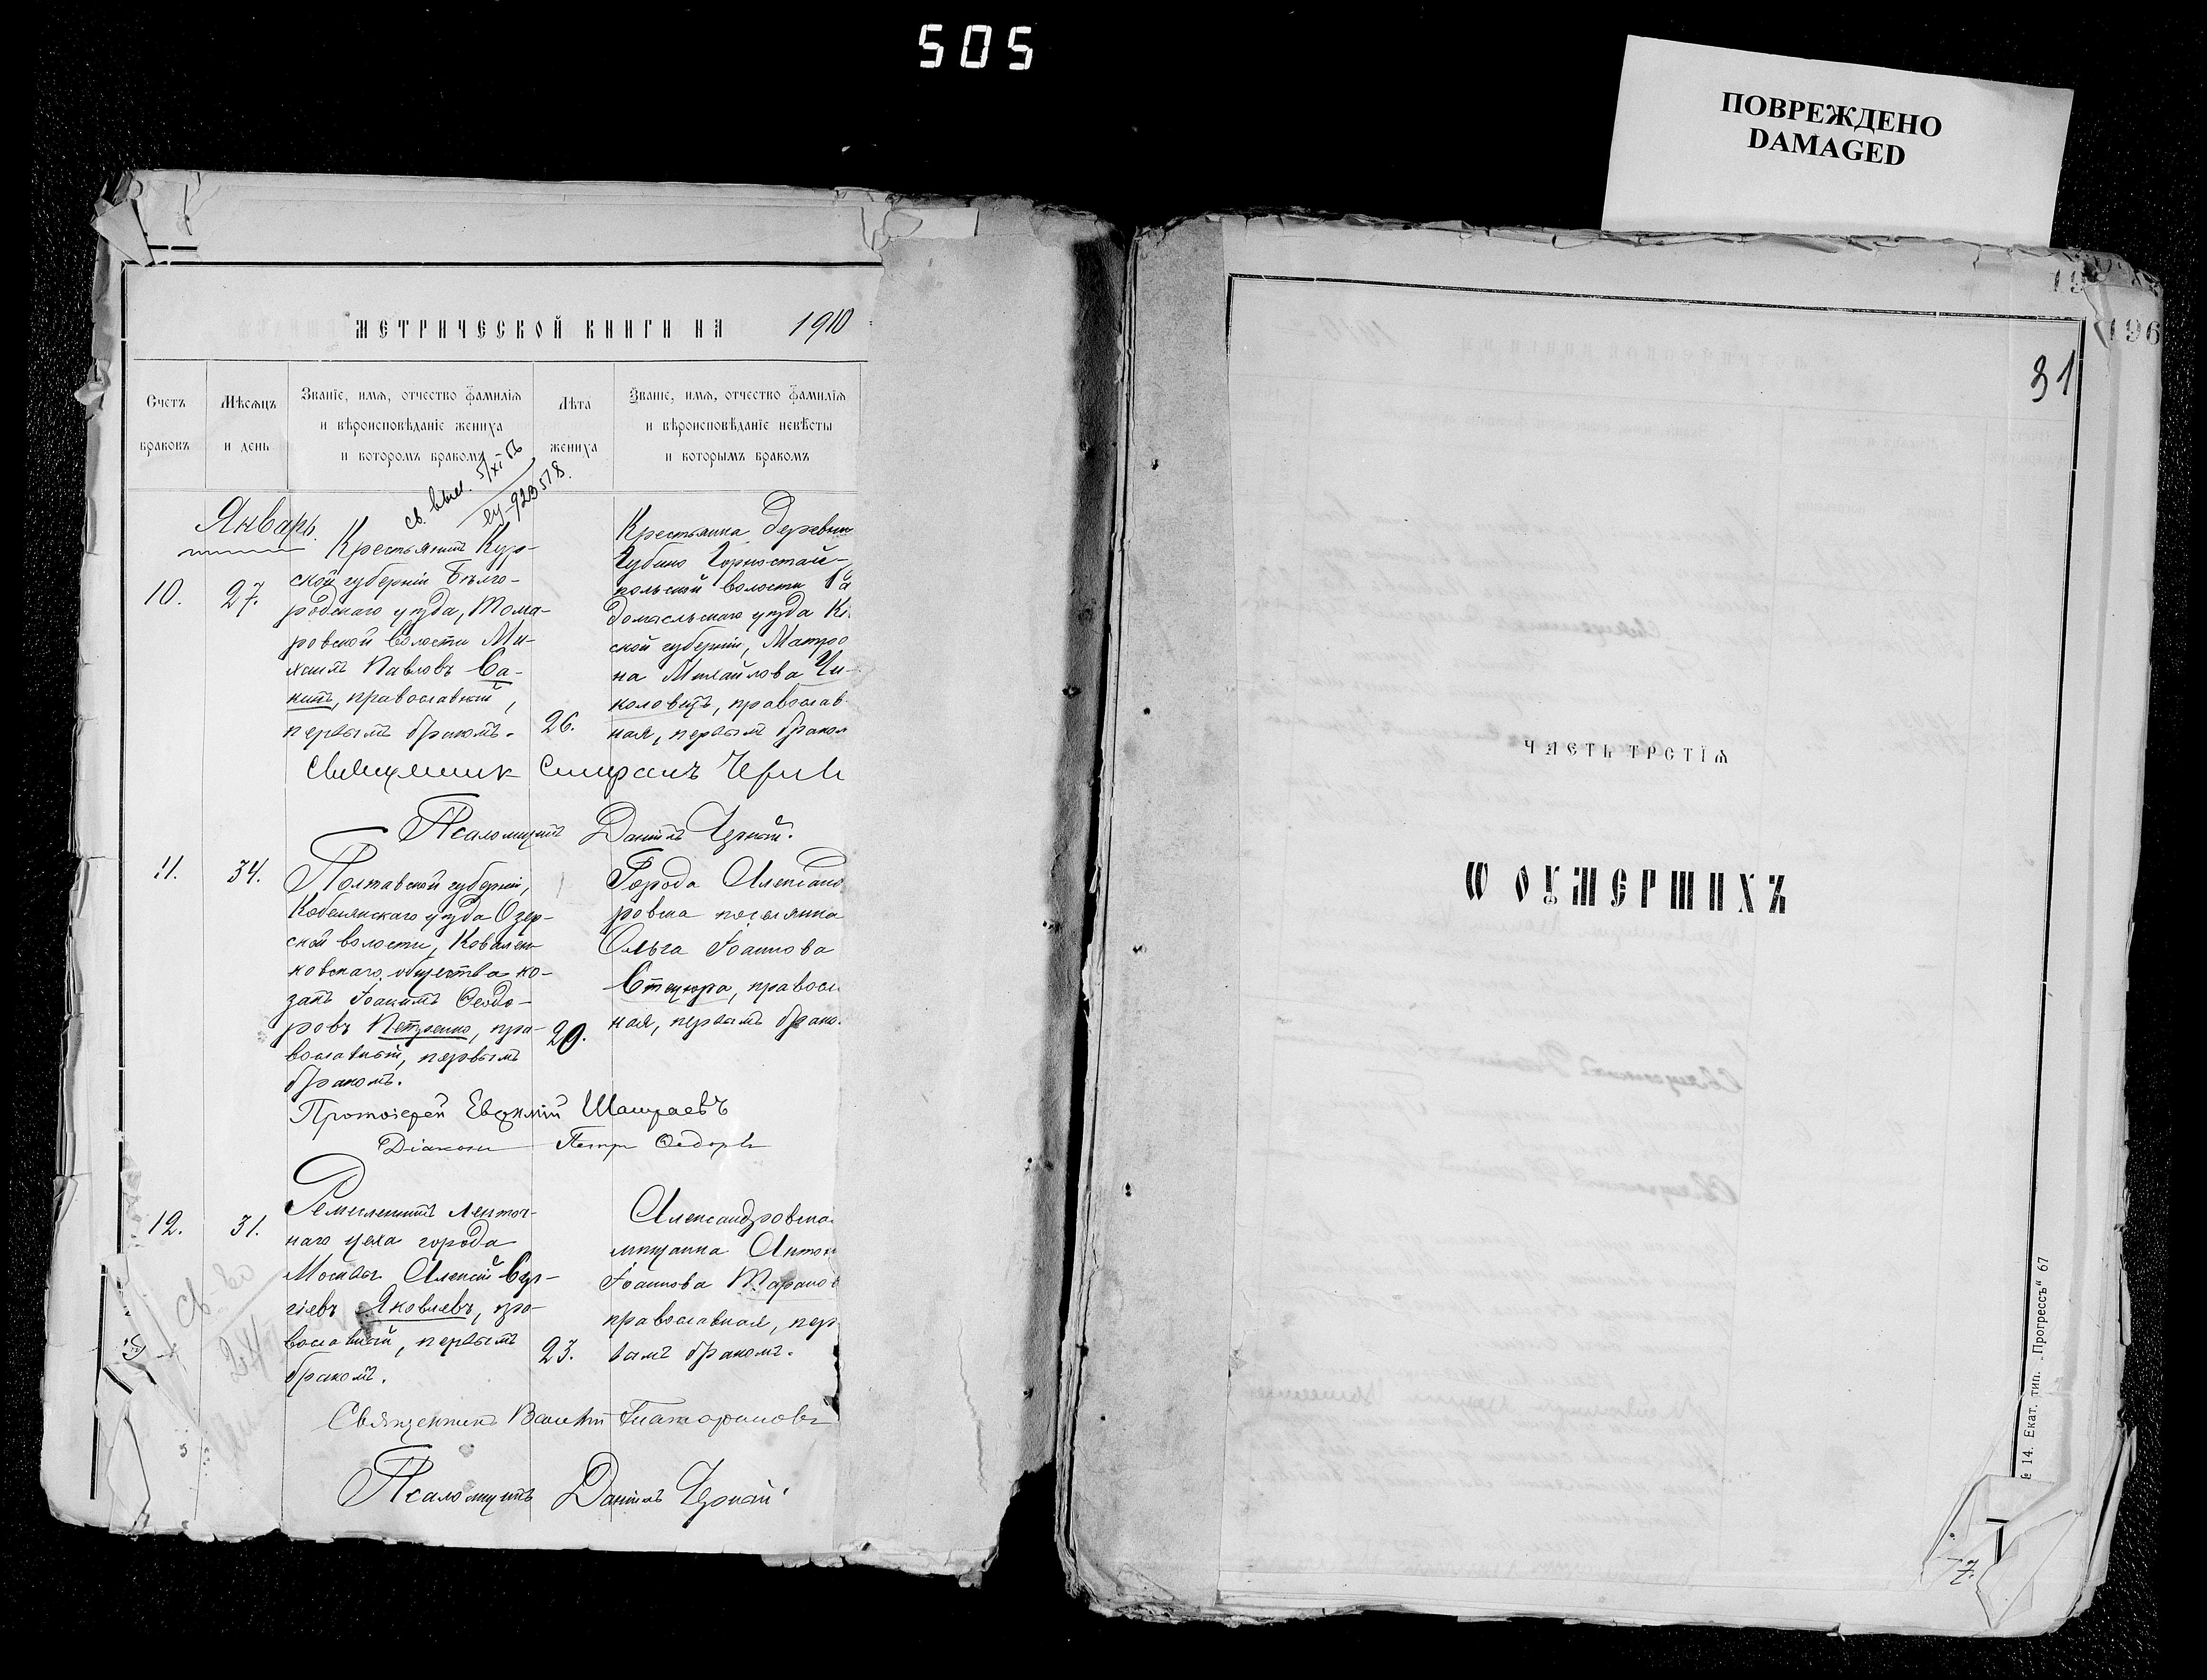 505
ПОВРЕЖДЕНО
DAMAGED
МЕТРИЧЕСКОЙ КНИГИ НА 1910
Счетъ браковъ
Мѣсяцъ и день
Званіе, имя, отчество фамилія
и вѣроисповѣданіе жениха
и которомъ бракомъ
Лѣта жениха
Званіе, имя, отчество фамилія
и вѣроисповѣданіе невѣсты
и которымъ бракомъ
св. выс. 5/XI 56
923518.
Январь.
10. 27.
Крестьянинъ Кур-
ской губерніи Бѣлго-
родскаго уѣзда, Тома-
ровской волости Ми-
хаилъ Павловъ Са-
нинъ, православный,
первымъ бракомъ.
26.
Крестьянка деревни
Губино Горностай-
польской волости Ра
домысльскаго уѣзда Кі
ской губерніи, Матро
на Михайлова Чи-
коловецъ, православ
ная, первымъ браком
Священник Спиридонъ
Псаломщикъ Даніилъ Чорный.
11. 31.
Полтавской губерніи,
Кобелякскаго уѣзда Озер-
ской волости, Ковален-
ковскаго общества ко-
закъ Іоакимъ Ѳеодо-
ровъ Петренко, пра-
вославный, первымъ
бракомъ.
29.
Города Александ
ровска поселянка
Ольга Іоаннова
Стецюра, правосл
ная, первымъ брако
Протоіерей Евѳимій
Діаконъ Петръ Ѳедор
12. 31.
Ремесленникъ ленточ-
наго цеха города
Москвы Алексій Сер-
гіевъ Яковлевъ, пра-
вославный, первымъ
бракомъ.
23.
Александровская
мѣщанка Антон
Іоаннова Таранов
православная, пер
вымъ бракомъ.
Священникъ Платоновъ
Псаломщикъ Даніилъ Чорный
196
31
ЧАСТЬ ТРЕТІЯ
Ѡ ОУМЕРШИХЪ
№ 14. Екат. тип. „Прогрессъ“ 67